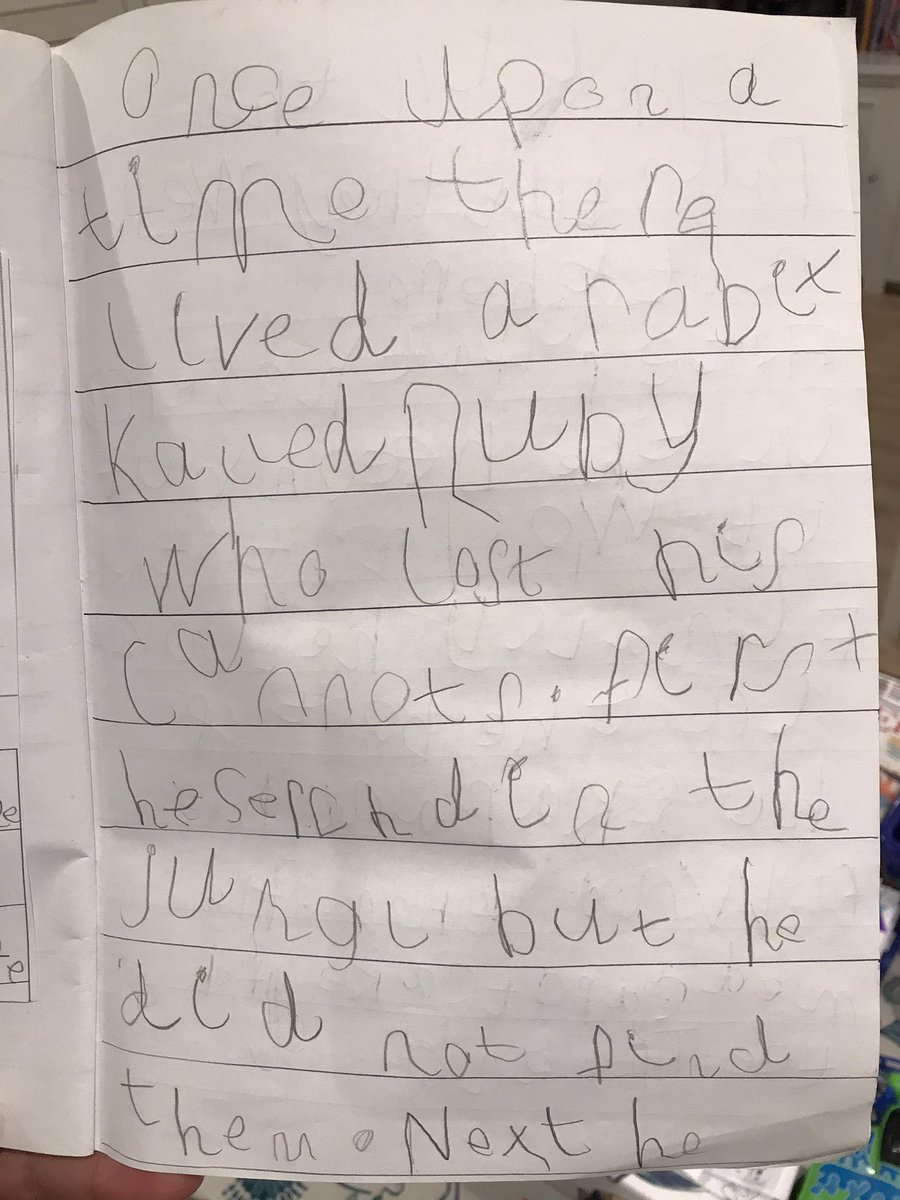 Once upon a
time there
lived a rabit
Kalled Ruby
who lost his
carrots. first
he serched in the
jungl but he
did not find
them. Next he